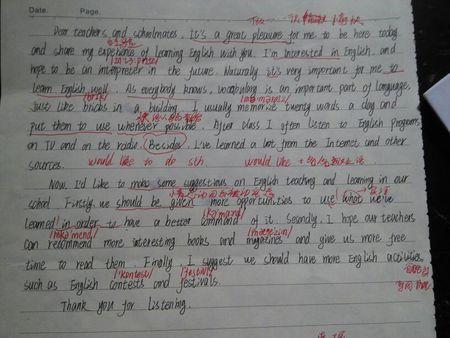 Date. Page.
Dear teachers and schoolmates, it's a great pleasure for me to be here today
and share my experience of learning English with you. I'm interested in English, and
hope to be an interpreter in the future. Naturally it's very important for me to
learn English well. As everybody knows, vocabulary is an important part of language,
/brik/
just like bricks in a building. I usually memorize twenty words a day and
put them to use whenever possible. After class I often listen to English programs
on TV and on the radio. Besides, I've learned a lot from the Internet and other
sources. would like to do sth. would like +
Now, I'd like to make some suggestions on English teaching and learning in our
school. Firstly, we should be given more opportunities to use what we've
learned in order to have a better command of it. Secondly, I hope our teachers
can recommend more interesting books and magazines and give us more free
time to read them. Finally, I suggest we should have more English activities,
such as English contests and festivals.
Thank you for listening.